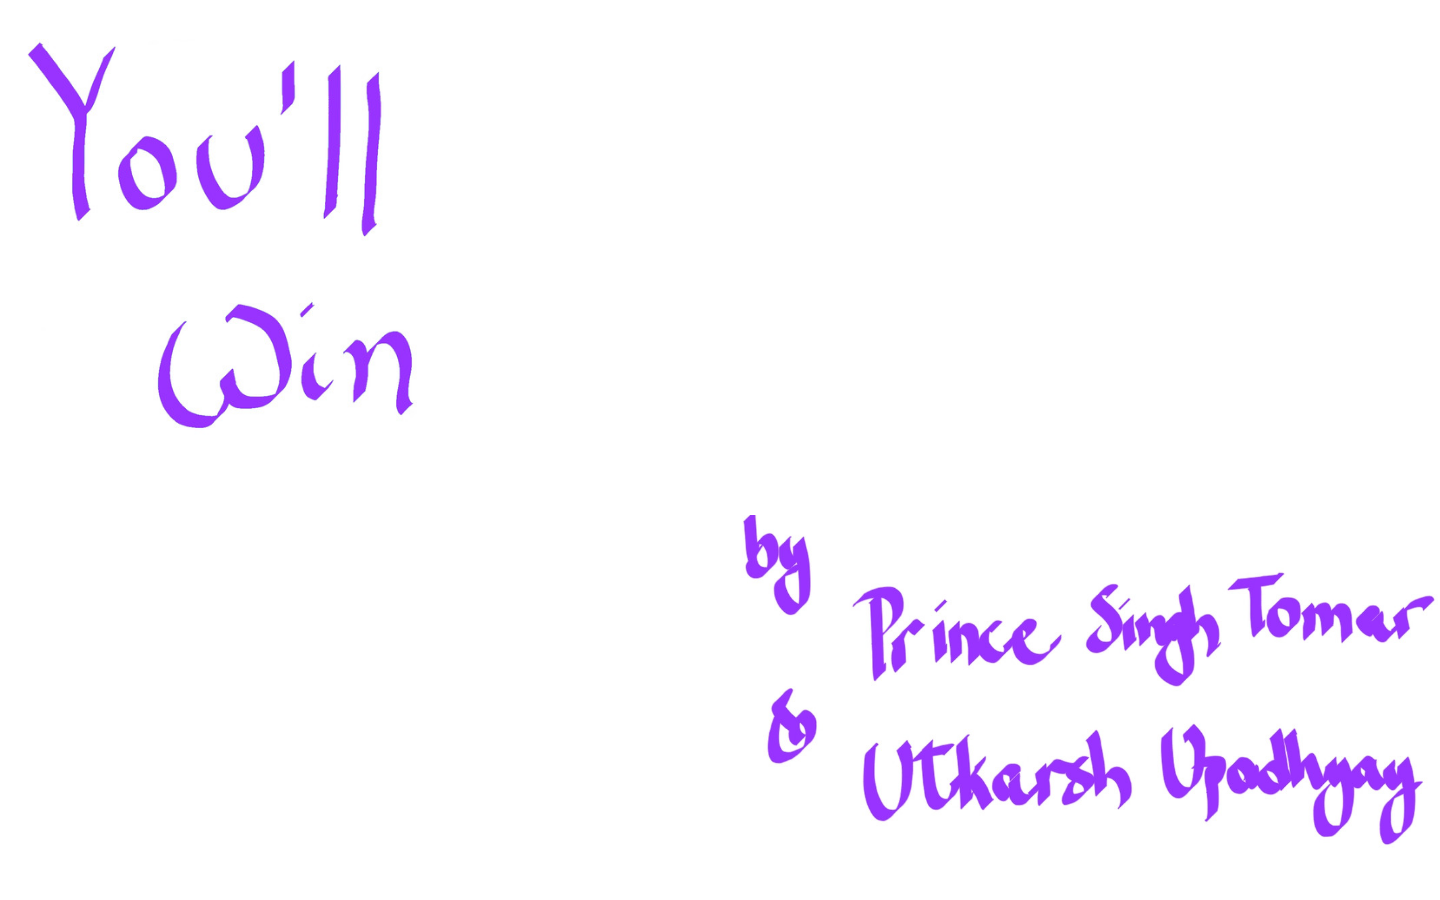 You'll
Win
by
Prince Singh Tomar
&
Utkarsh Upadhyay